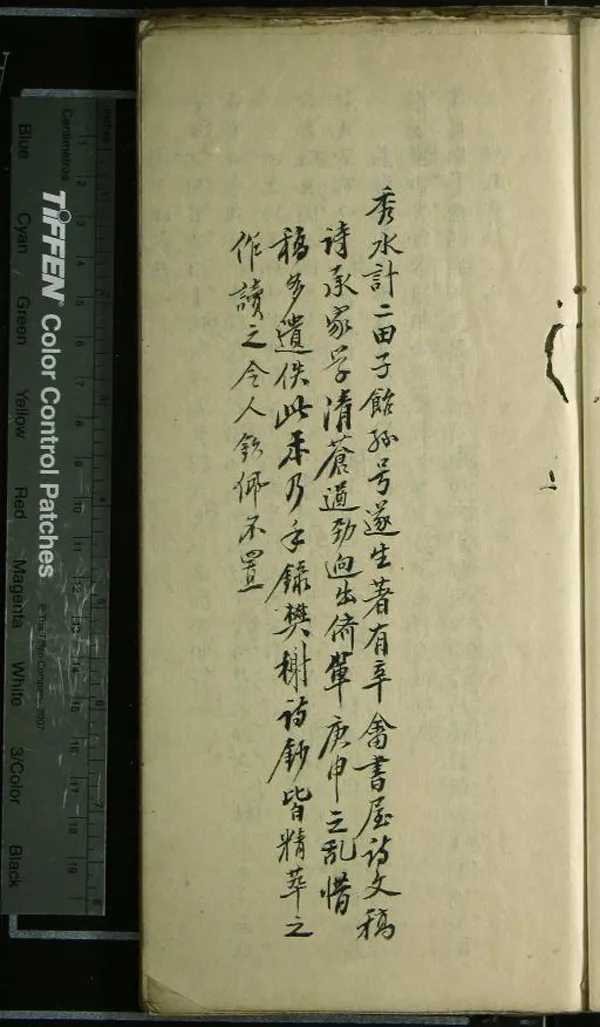 秀水計二田子飴孫号遂生著有辛畬書屋詩文稿
詩承家学清蒼遒勁迥出儕軰庚申之乱惜
稿多遺佚此本乃手錄樊榭詩鈔皆精萃之
作讀之令人欽佩不置
TIFFEN Color Control Patches
© The Tiffen Company, 2007
Centimetres
Inches
Blue
Cyan
Green
Yellow
Red
Magenta
White
3/Color
Black